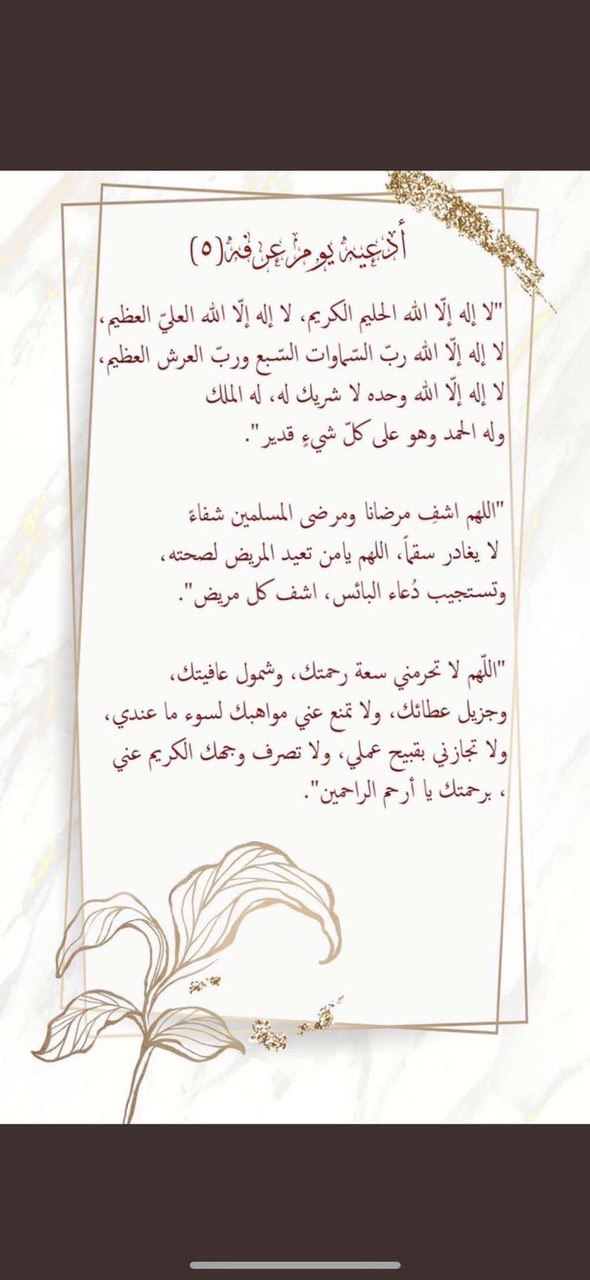 أدعيه يوم عرفه (٥)
"لا إله إلّا الله الحليم الكريم، لا إله إلّا الله العليّ العظيم،
لا إله إلّا الله ربّ السّماوات السّبع وربّ العرش العظيم،
لا إله إلّا الله وحده لا شريك له، له الملك
وله الحمد وهو على كلّ شيءٍ قدير".
"اللهم اشفِ مرضانا ومرضى المسلمين شفاءً
لا يغادر سقماً، اللهم يامن تعيد المريض لصحته،
وتستجيب دُعاء البائس، اشف كل مريض".
"اللّهم لا تحرمني سعة رحمتك، وشمول عافيتك،
وجزيل عطائك، ولا تمنع عني مواهبك لسوء ما عندي،
ولا تجازني بقبيح عملي، ولا تصرف وجهك الكريم عني
، برحمتك يا أرحم الراحمين".